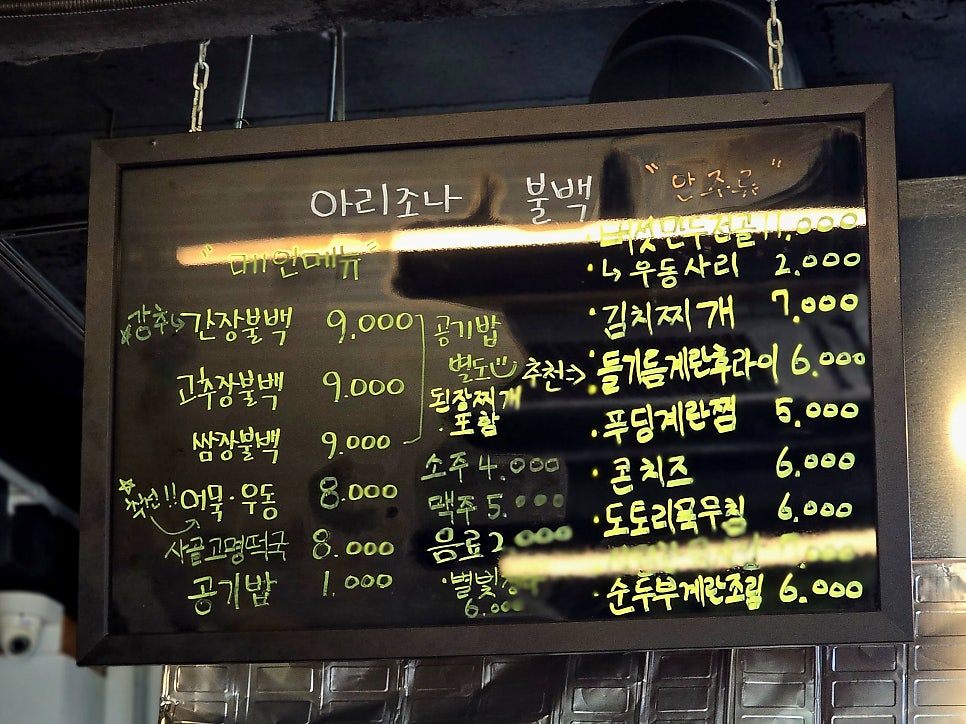 아리조나 불백
"메인메뉴"
강추↳ 간장불백 9.000
고추장불백 9.000
쌈장불백 9.000
공기밥
별도
된장찌개
포함
어묵·우동 8.000
사골고명떡국 8.000
공기밥 1.000
소주 4.000
맥주 5.000
음료 2.000
·별빛
6.000
"안주류"
버섯만두전골 11.000
·↳ 우동사리 2.000
·김치찌개 7.000
추천⇒ ·들기름계란후라이 6.000
·푸딩계란찜 5.000
·콘치즈 6.000
·도토리묵무침 6.000
·순두부계란조림 6.000